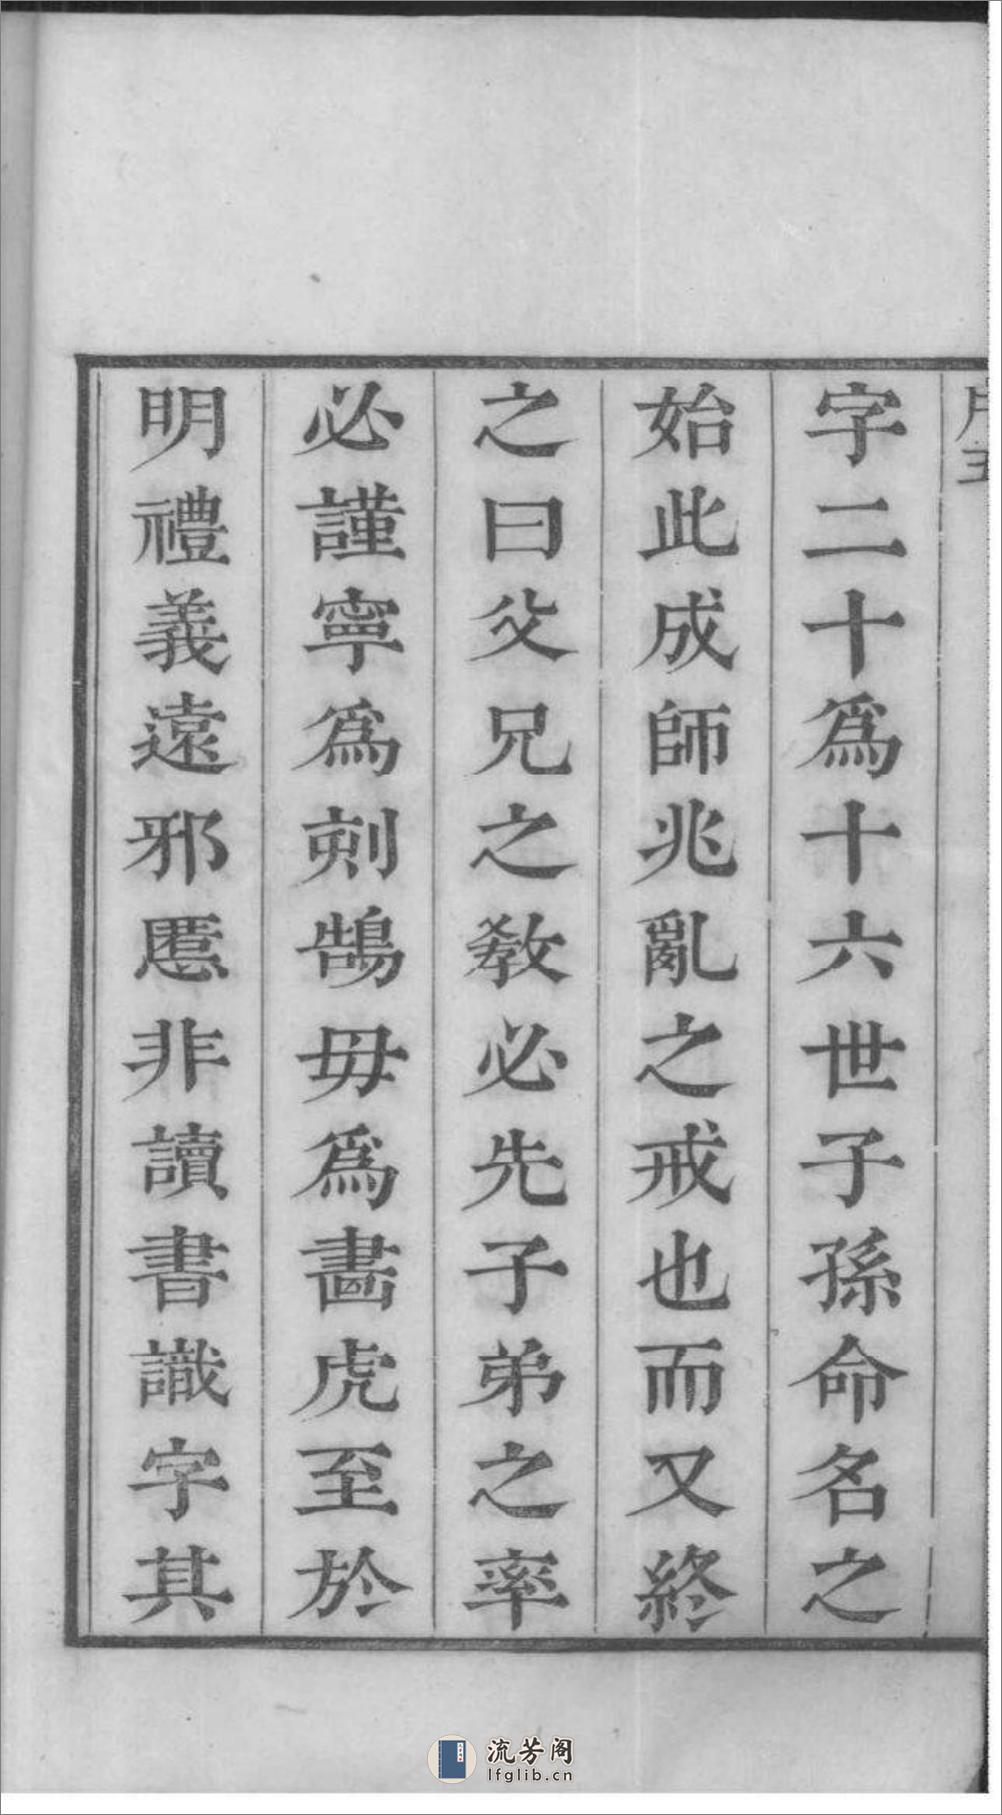 字二十為十六世子孫命名之
始此成師兆亂之戒也而又終
之曰父兄之教必先子弟之率
必謹寧為刻鵠毋為畵虎至於
明禮義遠邪慝非讀書識字其
流芳阁
lfglib.cn